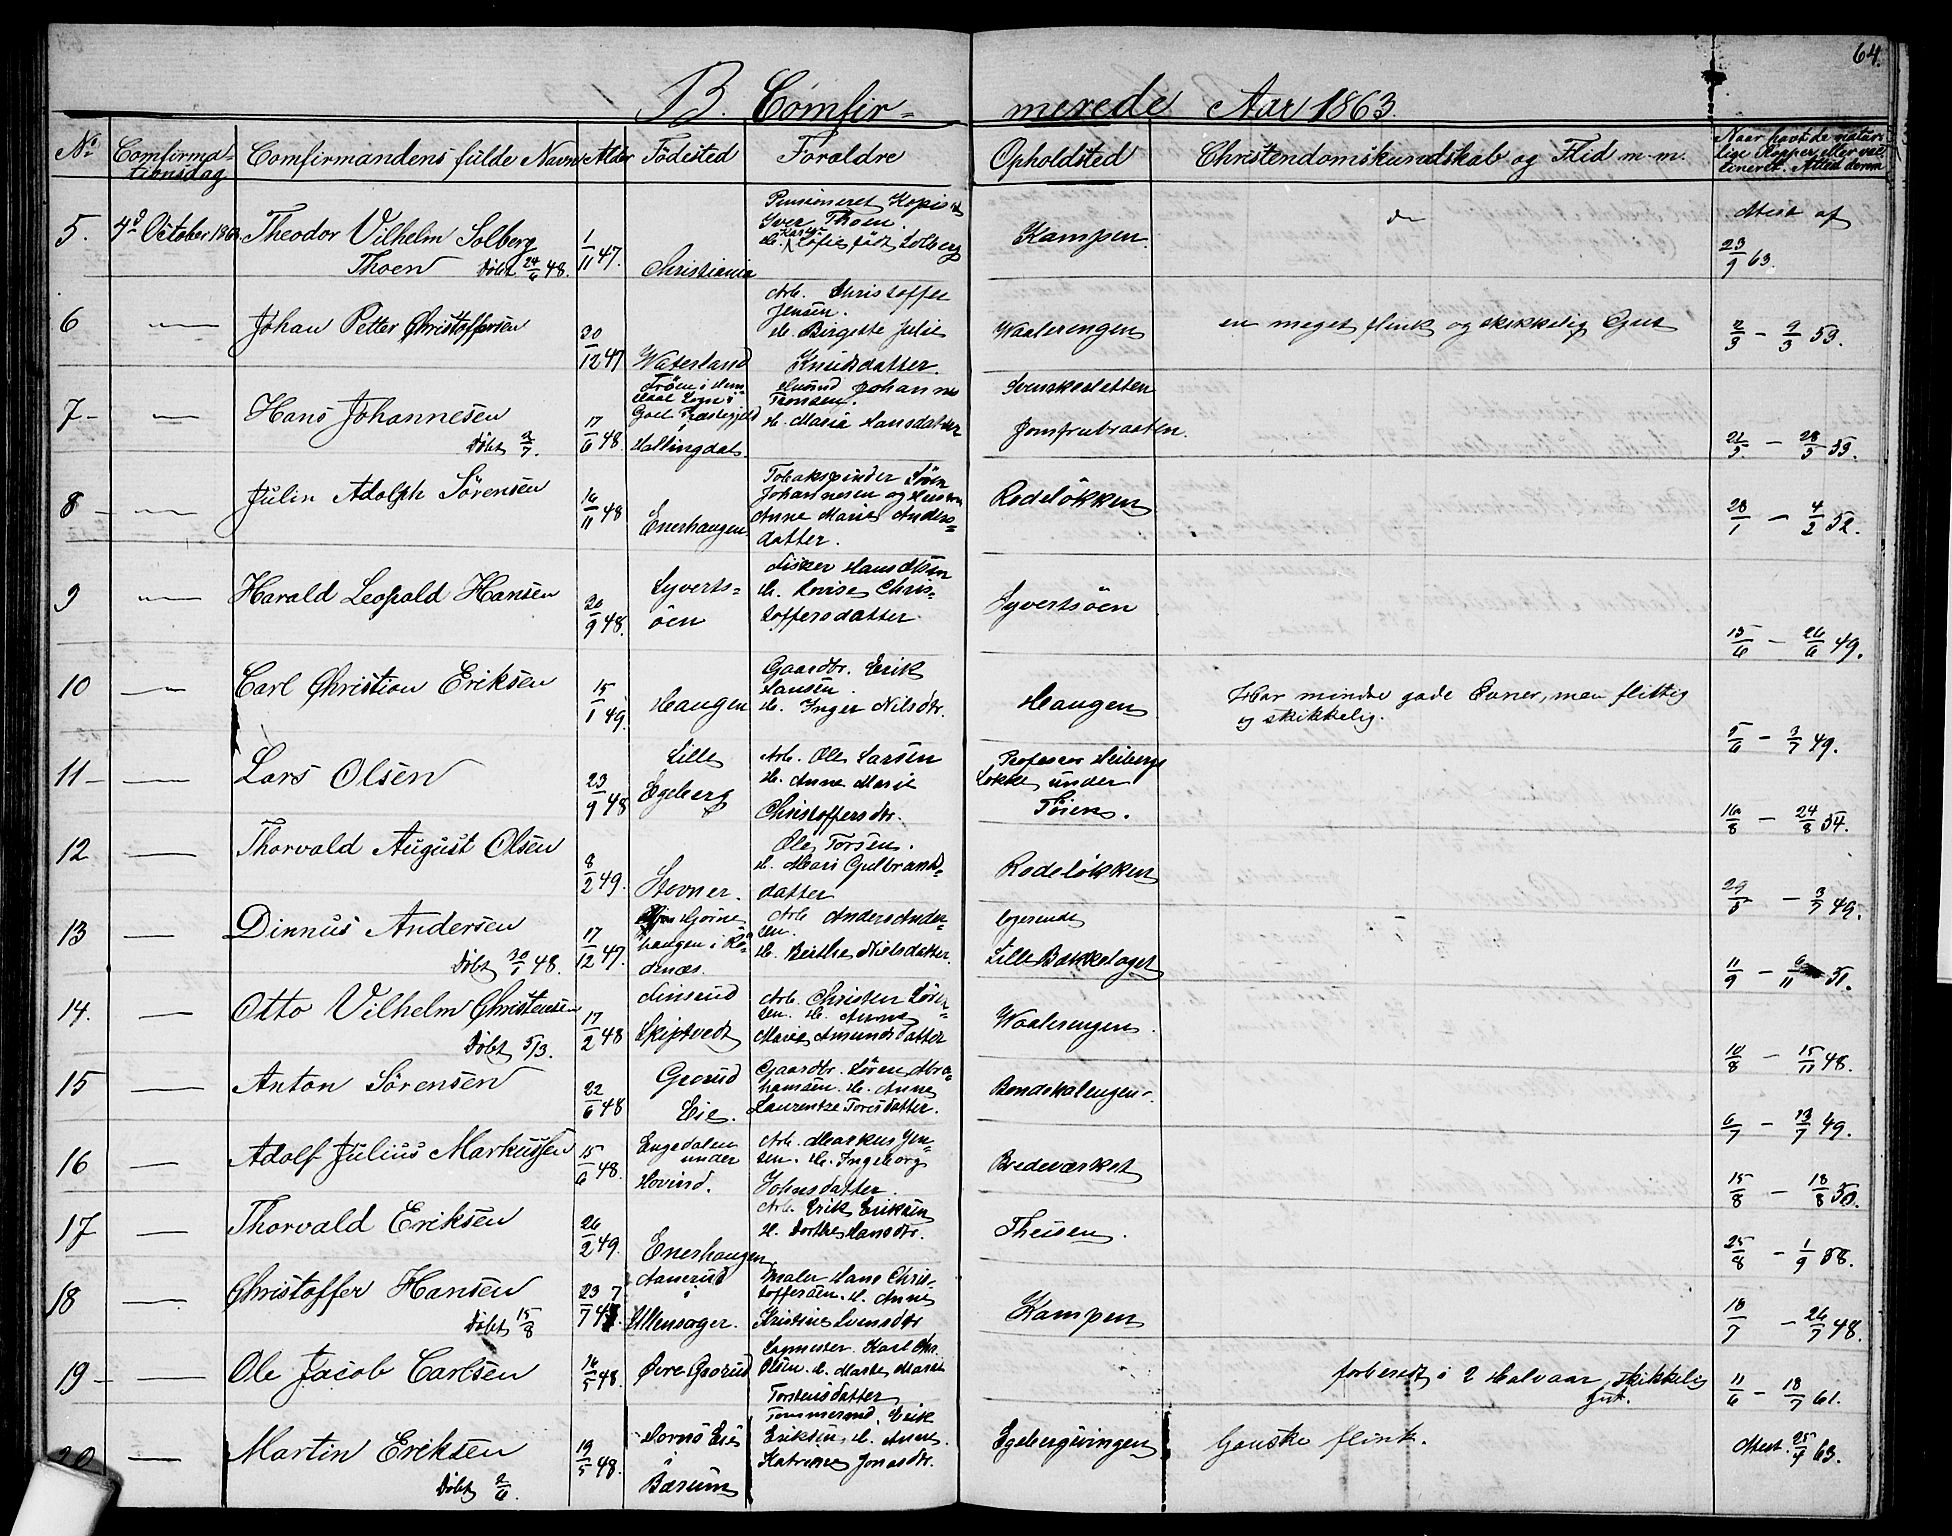 64.
B. Comfir= merede Aar 1863.
No. Comfirmationsdag Comfirmandens fulde Navn Alder Födested Foraldre Opholdsted Christendomskundskab og Flid m-m. Naar havt de naturlige Kopper eller vaccineret. Attest derom
5. 4d October 1863. Theodor Vilhelm Solberg Thoen Döbt 24/6 48. 1/11 47. Christiania Pensioneret Kopist Iver Thoen. H. Karen Sofie födt Solberg Kampen. Attest af 23/9 63.
6 — Johan Petter Christoffersen 20/12 47 Waterland Arb. Christoffer Jensen. H. Birgitte Julie Knudsdatter. Waalerengen en meget flink og skikkelig Gut 2/3 - 9/3 53.
7- — Hans Johannesen Döbt 2/7. 17/6 48. Tröen i Hemsdal Sogn Goel Præstegjeld i Hallingdal. Husmd Johannes Tomsen. H. Maria Hansdatter Svenskesletten Jomfrubraaten. 21/5. - 28/5 53.
8- — Julin Adolph Sörensen 16/11 48 Enerhaugen. Tobakspinder Sören Johannesen og Hustru Anne Marie Andersdatter. Rodelökken 28/1 - 4/2 52.
9 — Harald Leopold Hansen 20/9 48. Syverts=öen Fisker Hans Olsen H. Lovise Christoffersdatter. Syvertsöen 15/6 - 26/6 49.
10 — Carl Christian Eriksen 15/1 49. Haugen Gaardbr. Erik Hansen. H. Inger Nilsdtr. Haugen Har mindre gode Evner, men flittig og skikkelig. 5/6 - 3/7 49.
11- — Lars Olsen 23/9 48 Lille Egeberg Arb. Ole Larsen H. Anne Marie Christoffersdtr. Professor Heibergs Lökke under Töien. 16/8 - 24/8 54.
12 — Thorvald August Olsen 8/2 49. Stovner. Ole Torsen. H. Mari Gulbrandsdatter Rodelökken 29/5 - 3/7 49.
13 — Dinnus Andersen Döbt 30/1 48. 17/12 47. haugen i Rödenæs. Arb. Anders Andersen. H. Berthe Nielsdatter. logerende Lille Bækkelaget 11/9 - 6/11 51.
14. — Otto Vilhelm Christensen Döbt 5/3. 17/2 48 Finsrud Skiptvedt Arb. Christen Sörensen. H. Anne Marie Amundsdatter Waalerengen. 10/8 - 15/11 48.
15 — Anton Sörensen 22/6 48 Grorud Eie. Gaardbr. Sören Abrahamsen. H. Anne Laurentze Toresdatter. Bondskalengen. 6/7 - 13/7 49.
16 — Adolf Julius Markussen 15/6 48. Engedalen under Hovind. Arb. Markus Jensen. H. Ingeborg Johnsdatter Bredeværket 15/8 - 18/8 50.
17 — Thorvald Eriksen 26/2 49. Enerhaugen Arb. Erik Eriksen H. Dorthe Hansdtr. Theisen. 25/8 - 1/9 58.
18 — Christoffer Hansen Döbt 15/8 23/7 47. i Ullensager. Maler Hans Christoffersen. H. Anne Kristine Svensdtr Kampen 18/7 - 26/7 48.
19- — Ole Jacob Carlsen 16/5 48. Övre Grorud Sagmester Karl Chr. Olsen. H. Marthe Marie Torstensdatter forberedt i 2 Halvaar, skikkelig Gut. 11/6 - 18/7 61.
20 — Martin Eriksen Döbt 2/6. 19/5 48. Dorns Eie i Bærum Tömmermd. Erik Eriksen H. Anne Katrine Jonasdtr. Egebergvingen Ganske flink. Attest. 25/9 63.